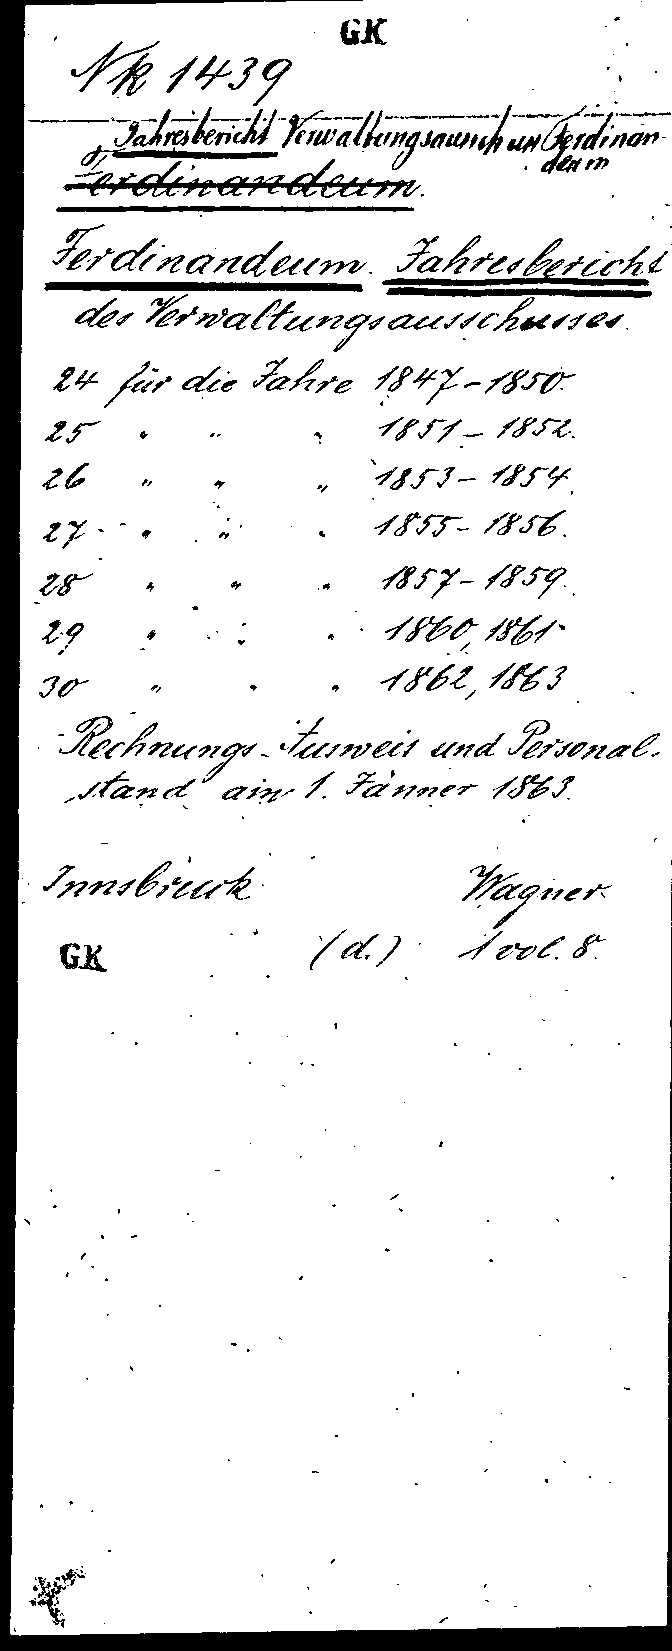 GK
Nk 1439
Jahresbericht Verwaltungsaussch Ferdinan-
deum
Ferdinandeum.
Ferdinandeum. Jahresbericht
des Verwaltungsausschusses.
24 für die Jahre 1847-1850.
25 " " " 1851-1852.
26 " " " 1853-1854.
27 " " " 1855-1856.
28 " " " 1857-1859.
29 " " " 1860, 1861
30 " " " 1862, 1863
Rechnungs-Ausweis und Personal-
stand am 1. Jänner 1863.
Innsbruck Wagner.
GK (d.) 1 vol. 8.